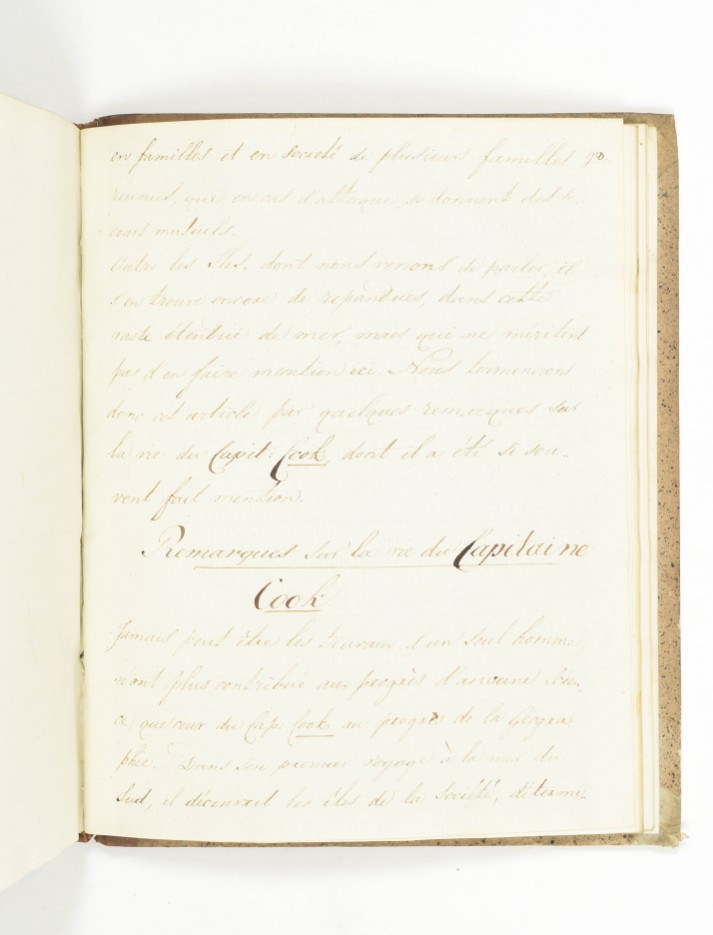 en familles et en societé de plusieurs familles 98
reunies, qui en cas d'attaque, se donnent des se
cours mutuels.
Outre les Iles, dont nous venons de parler, il
s'en trouve encore de repandues, dans cette
vaste étendue de mer, mais qui ne méritent
pas d'en faire mention ici. Nous terminerons
donc cet article par quelques remarques sur
la vie du Capit: Cook, dont il a été si sou-
vent fait mention.
Remarques sur la vie du Capitaine
Cook
Jamais peut être les travaux d'un seul homme
n'ont plus contribué aux progrès d'aucune Scien
ce, que ceux du Cap: Cook au progrès de la Géogra
phie. Dans son premier voyage à la mer du
Sud, il découvrit les îles de la Société, détermi-